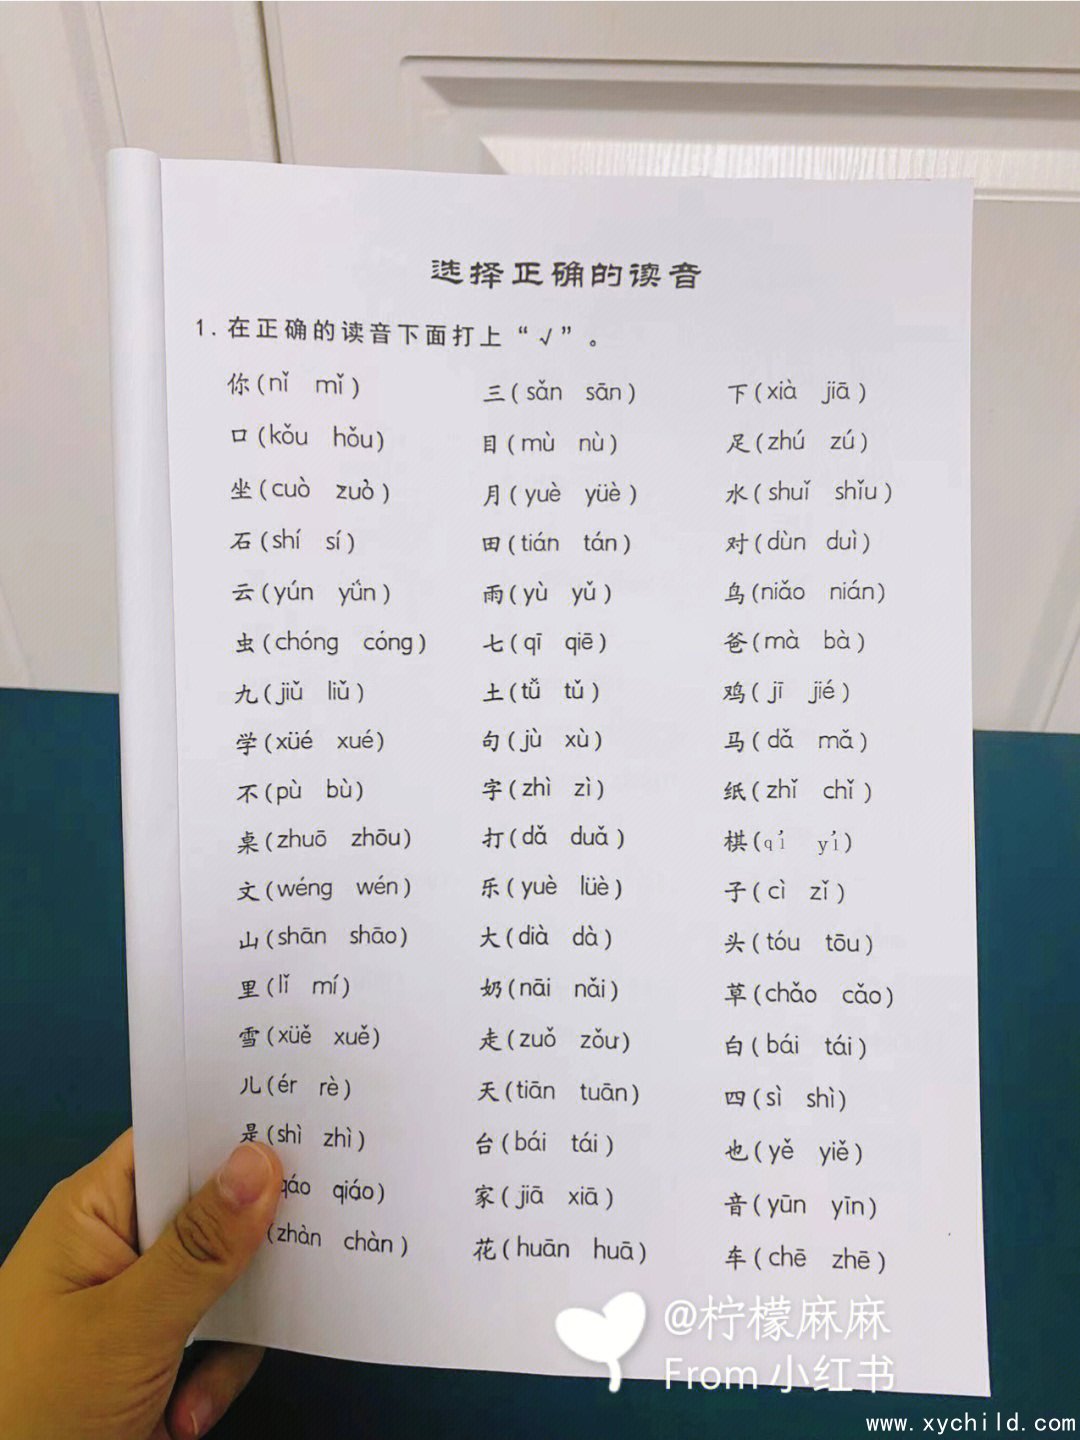 选择正确的读音
1. 在正确的读音下面打上“√”。
你(nǐ mǐ) 三(sǎn sān) 下(xià jiā)
口(kǒu hǒu) 目(mù nù) 足(zhú zú)
坐(cuò zuò) 月(yuè yüè) 水(shuǐ shǐu)
石(shí sí) 田(tián tán) 对(dùn duì)
云(yún yǘn) 雨(yù yǔ) 鸟(niǎo nián)
虫(chóng cóng) 七(qī qiē) 爸(mà bà)
九(jiǔ liǔ) 土(tǚ tǔ) 鸡(jī jié)
学(xüé xué) 句(jù xù) 马(dǎ mǎ)
不(pù bù) 字(zhì zì) 纸(zhǐ chǐ)
桌(zhuō zhōu) 打(dǎ duǎ) 棋(qí yí)
文(wéng wén) 乐(yuè lüè) 子(cì zǐ)
山(shān shāo) 大(dià dà) 头(tóu tōu)
里(lǐ mí) 奶(nāi nǎi) 草(chǎo cǎo)
雪(xüě xuě) 走(zuǒ zǒu) 白(bái tái)
儿(ér rè) 天(tiān tuān) 四(sì shì)
是(shì zhì) 台(bái tái) 也(yě yiě)
qáo qiáo) 家(jiā xiā) 音(yūn yīn)
(zhàn chàn) 花(huān huā) 车(chē zhē)
@柠檬麻麻
From 小红书
www.xychild.com